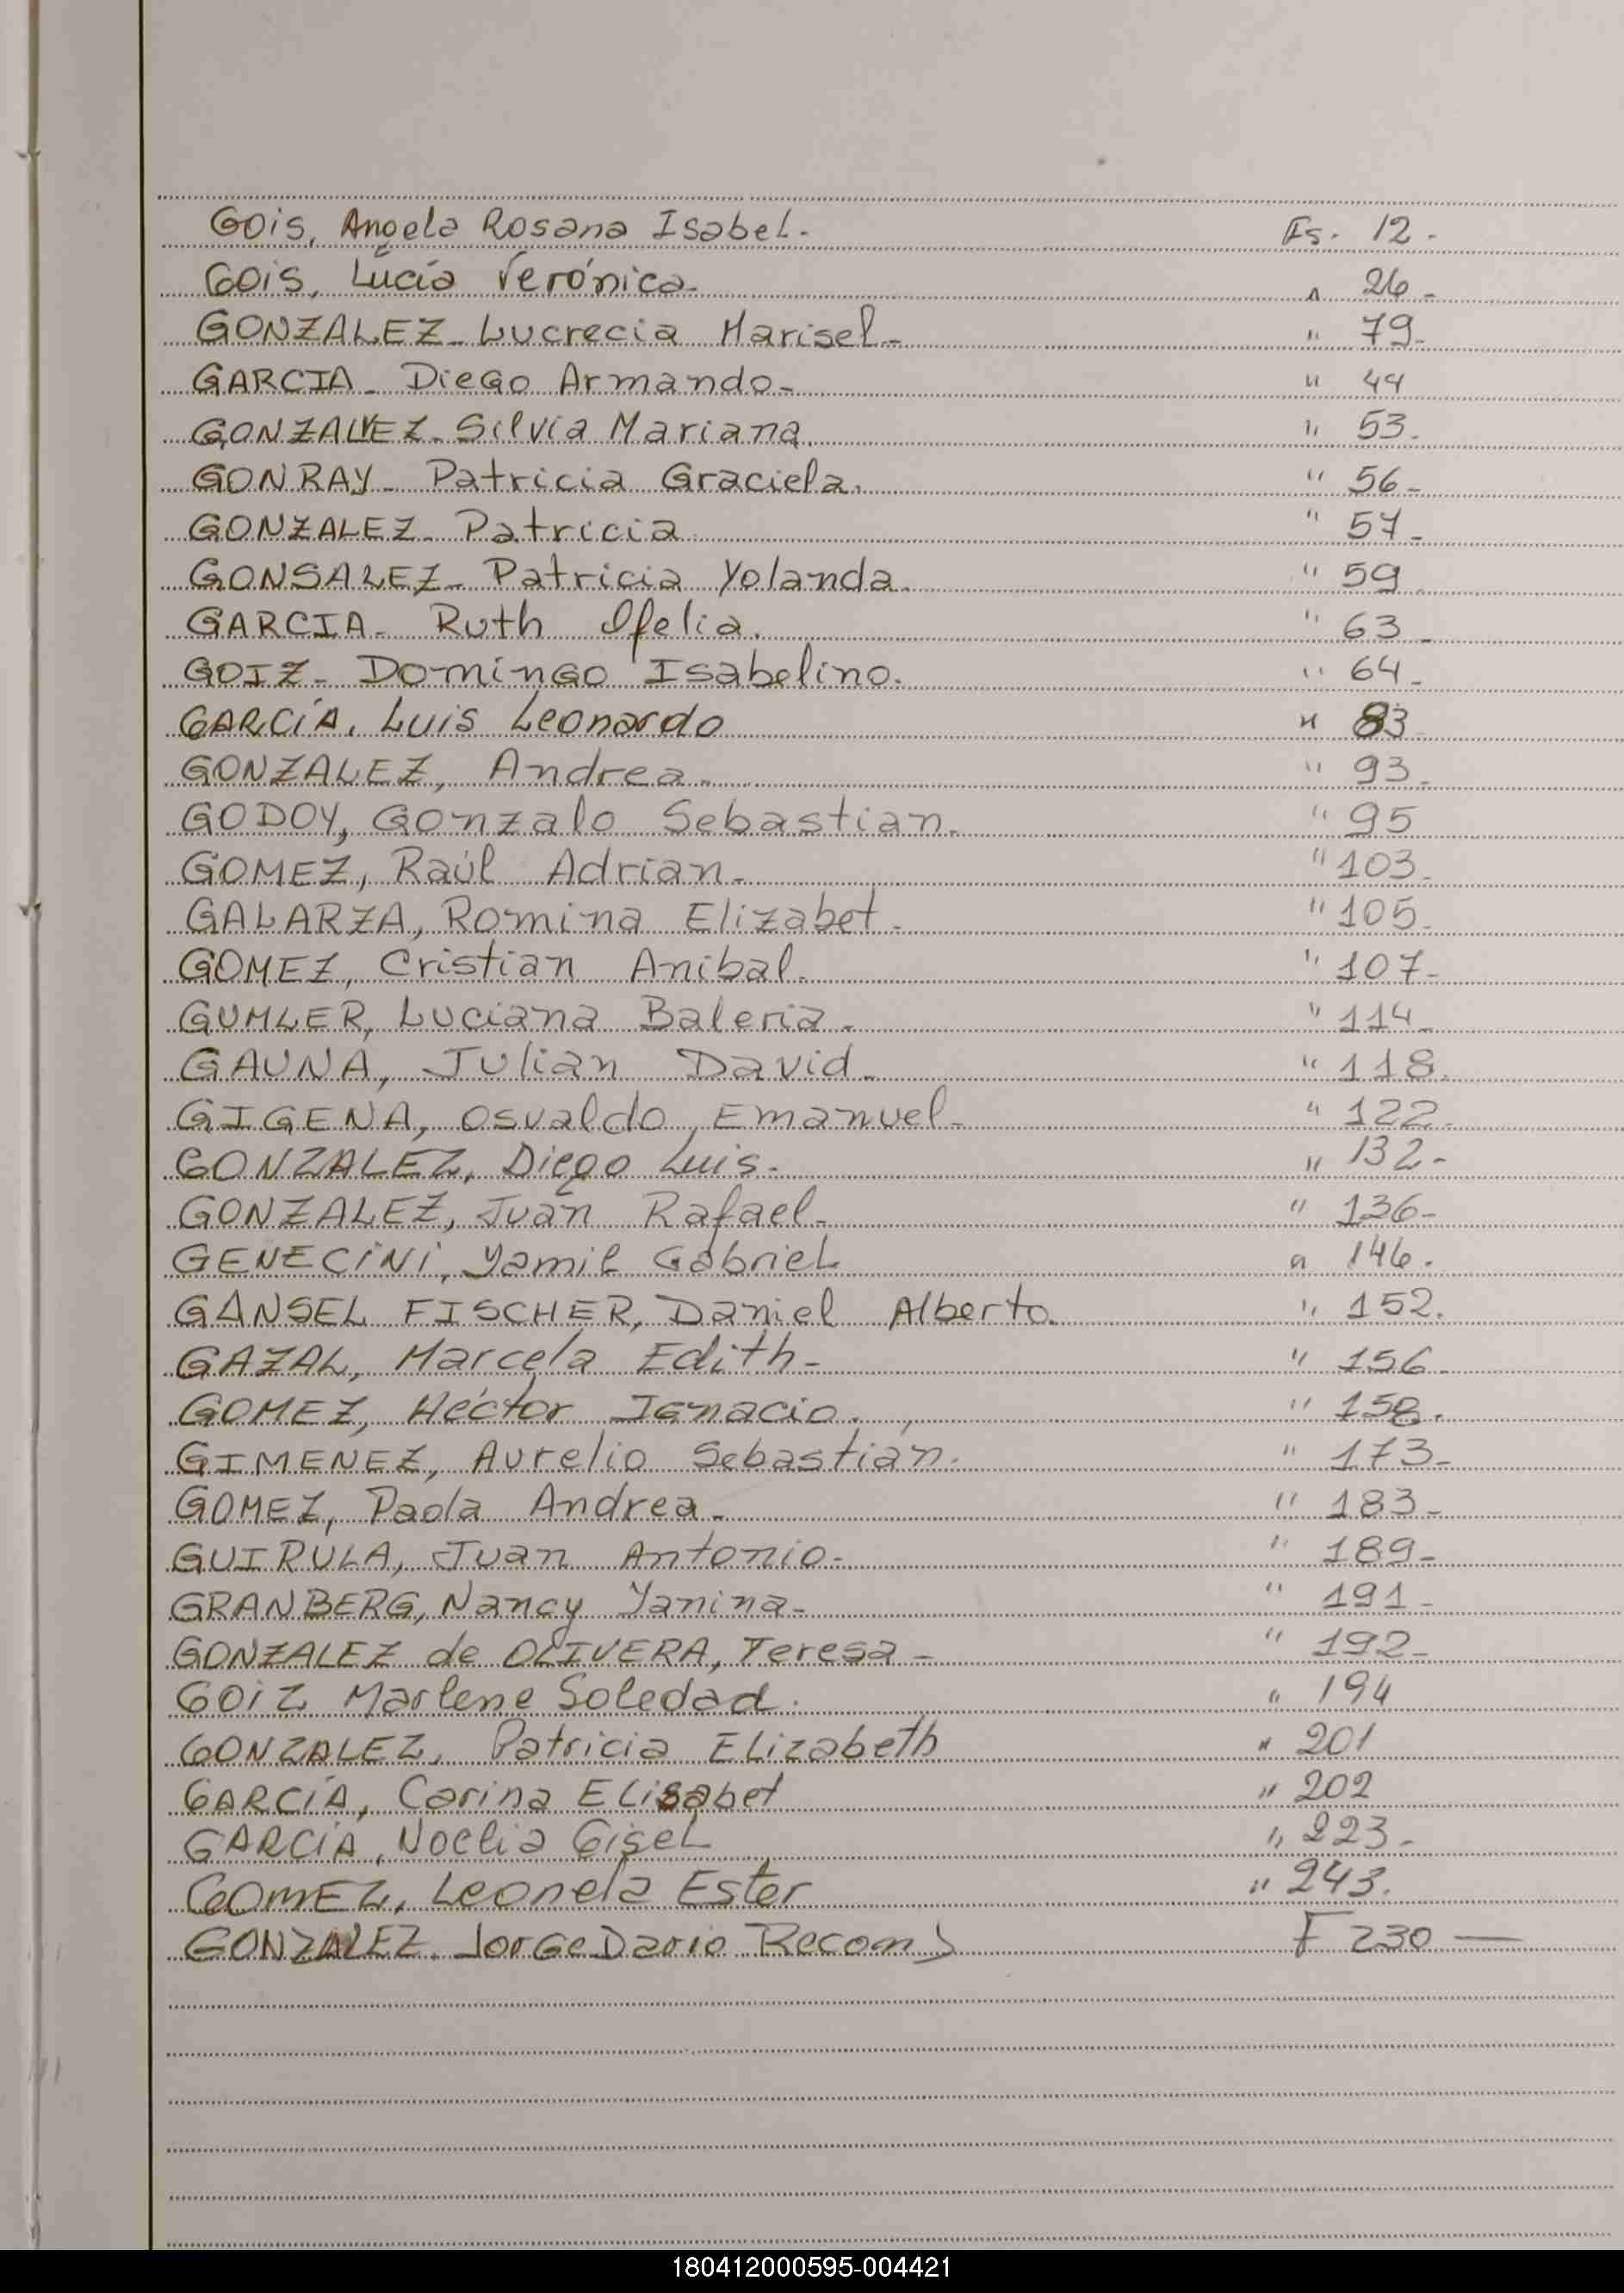 GOIS, Angela Rosana Isabel. Fs. 12.
GOIS, Lucía Verónica. " 26.
GONZALEZ- Lucrecia Marisel- " 79-
GARCIA- Diego Armando- " 44
GONZALVEZ- Silvia Mariana. " 53.
GONRAY- Patricia Graciela. " 56-
GONZALEZ- Patricia " 57-
GONSALEZ- Patricia Yolanda. " 59
GARCIA- Ruth Ofelia. " 63-
GOIZ- Domingo Isabelino. " 64-
GARCÍA, Luis Leonardo " 83
GONZALEZ, Andrea. " 93.
GODOY, Gonzalo Sebastian. " 95
GOMEZ, Raúl Adrian. " 103.
GALARZA, Romina Elizabet. " 105.
GOMEZ, Cristian Anibal. " 107-
GUMLER, Luciana Baleria. " 114-
GAUNA, Julian David. " 118.
GIGENA, Osvaldo Emanuel- " 122.
GONZALEZ, Diego Luis. " 132-
GONZALEZ, Juan Rafael- " 136-
GENECINI, Yamil Gabriel " 146.
GANSEL FISCHER, Daniel Alberto. " 152.
GAZAL, Marcela Edith- " 156.
GOMEZ, Héctor Ignacio. " 158.
GIMENEZ, Aurelio Sebastián. " 173-
GOMEZ, Paola Andrea- " 183-
GUIRULA, Juan Antonio- " 189-
GRANBERG, Nancy Yanina- " 191-
GONZALEZ de OLIVERA, Teresa- " 192-
GOIZ Marlene Soledad. " 194
GONZALEZ, Patricia Elizabeth " 201
GARCÍA, Carina Elisabet " 202
GARCÍA, Noelia Gisel " 223-
GOMEZ, Leonela Ester " 243.
GONZALEZ. Jorge Dario Recon) F 230 —
180412000595-004421